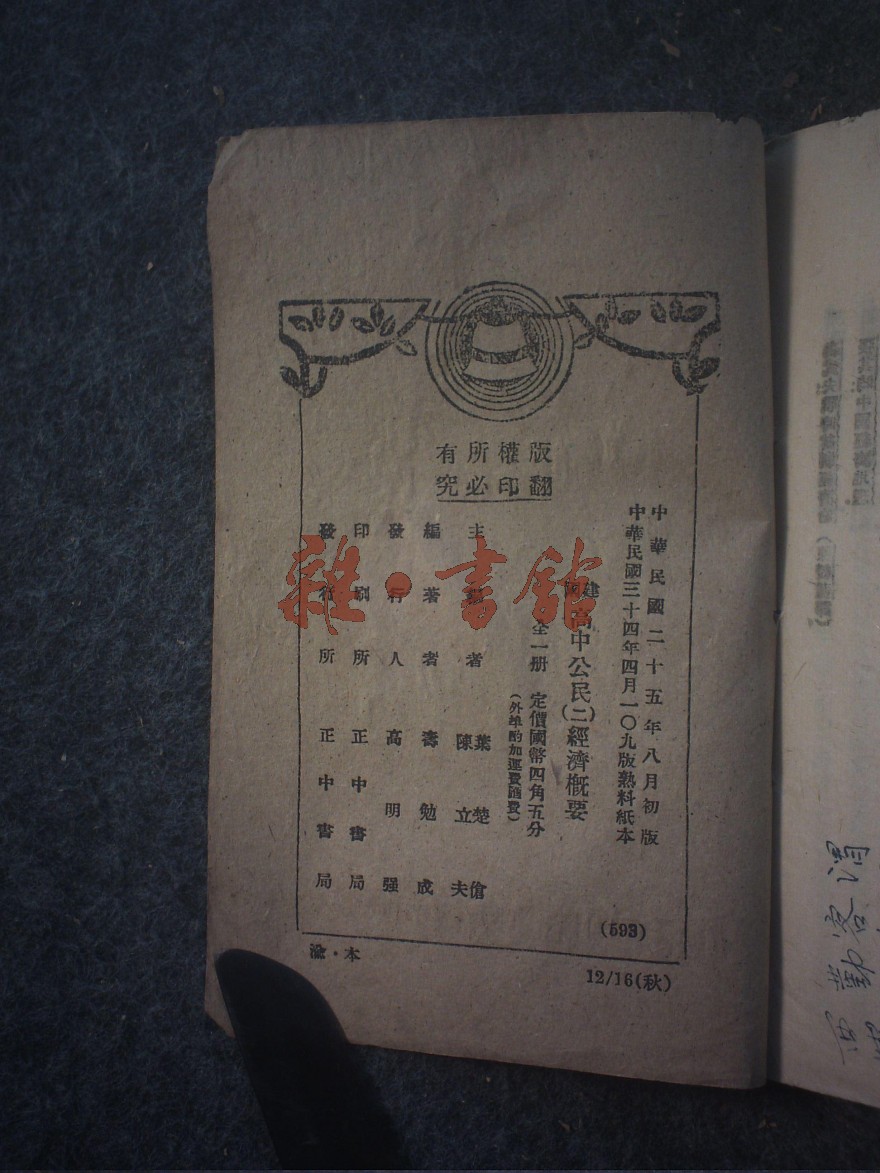 版權所有
翻印必究
中華民國二十五年八月初版
中華民國三十四年四月一〇九版熟料紙本
建國高中公民(二)經濟概要
全一册 定價國幣四角五分
(外埠酌加運費匯費)
主編者 葉楚傖
陳立夫
編著者 壽勉成
發行人 高明强
印刷所 正中書局
發行所 正中書局
(593)
渝·本
12/16(秋)
雜·書館